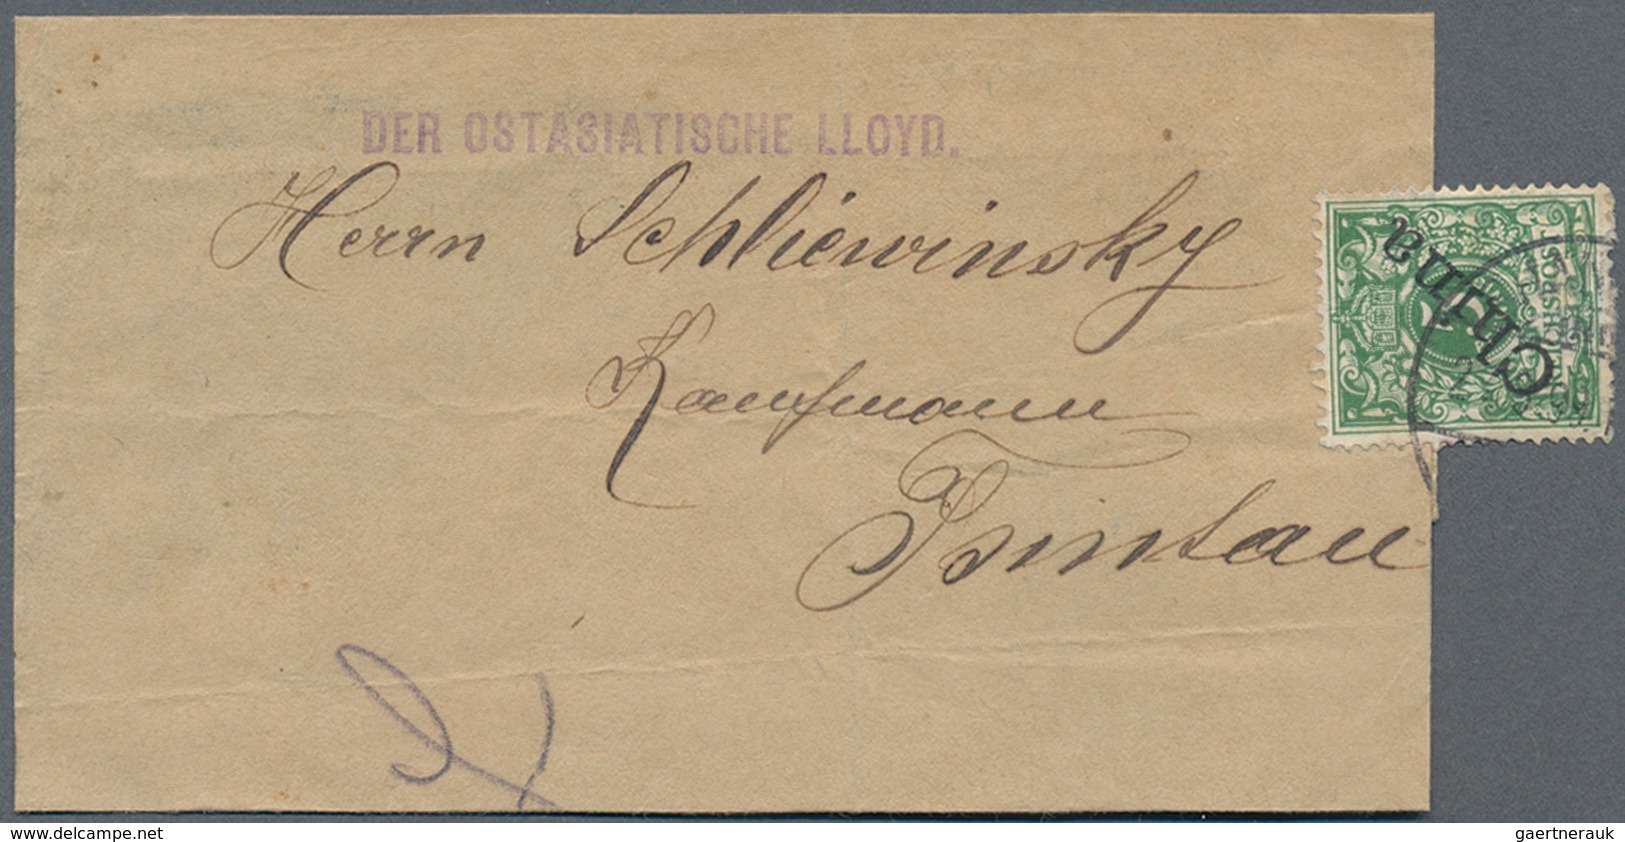 DER OSTASIATISCHE LLOYD.
Herrn Schliewinsky
Kaufmann
Tsintau
China
5
www.delcampe.net
gaertnerauk